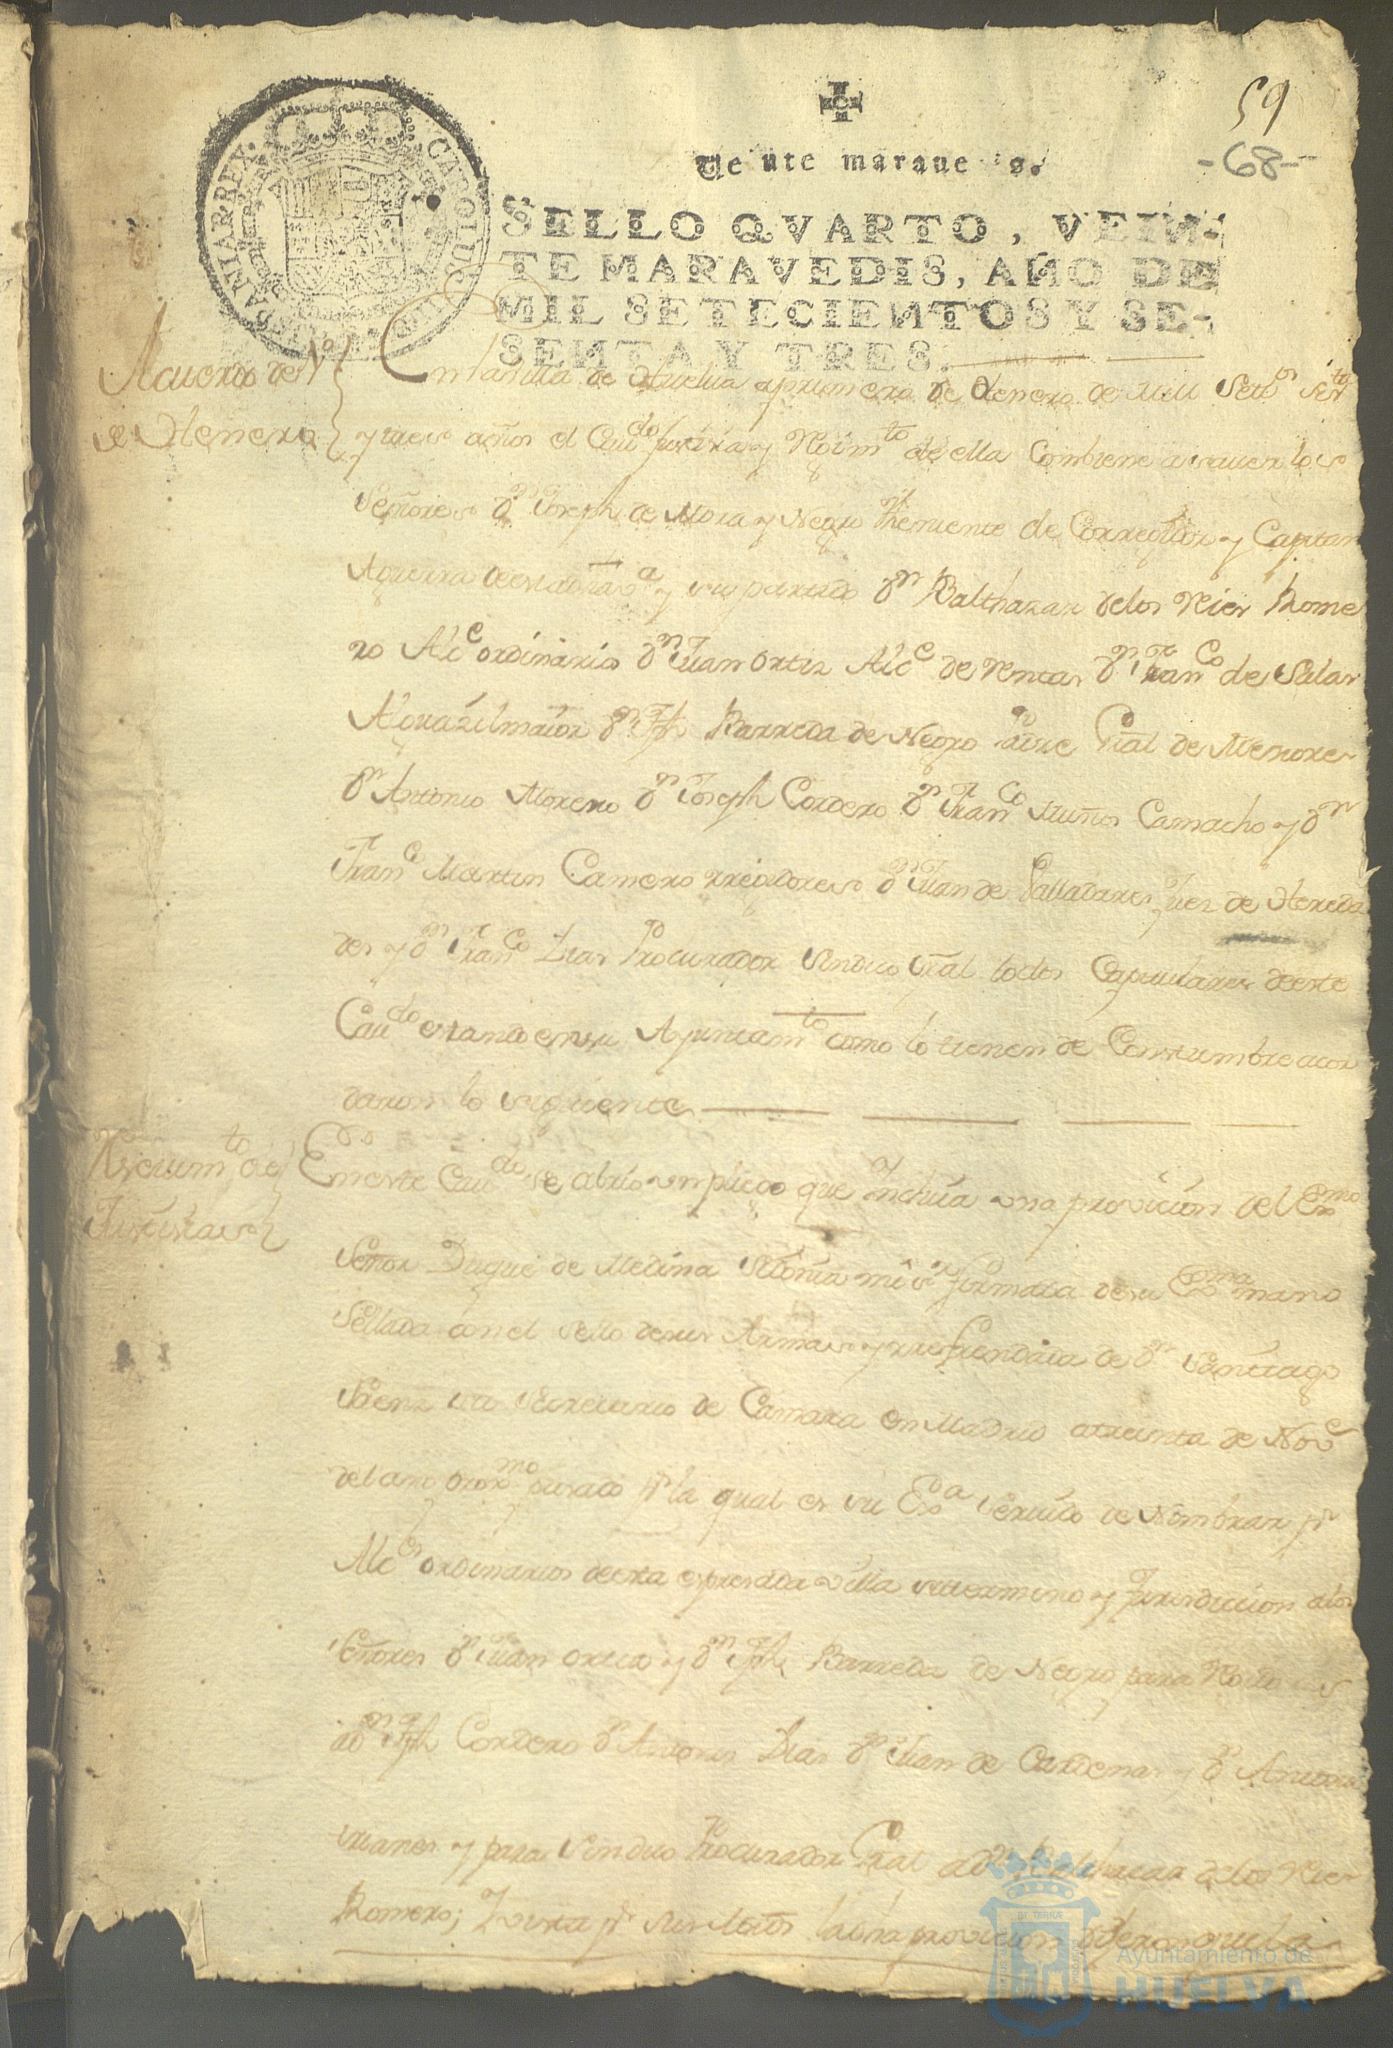 59
-68-
Veinte maravedis.
SELLO QVARTO, VEIN-
TE MARAVEDIS, AÑO DE
MIL SETECIENTOS Y SE-
SENTA Y TRES.
CAROLUS III HISPANIAR REX
Acuerdo de 1º
de Henero
En la villa de Huelva a primero de Henero de mill Setᵒˢ Sesᵗᵃ
y tres años el Cauᵈᵒ Justizia y Rejimᵗᵒ de ella Combiene a saver los
Señores Dⁿ Joseph de Mora y Negro theniente de Corregidor y Capitan
Aguerra de esta dha vᵃ y su partido Dⁿ Balthazar delos Rier Rome
ro Alcᵉ ordinario Dⁿ Juan Ortiz Alcᵉ de rentas Dⁿ Franᶜᵒ de Salas
Alguazil maior Dⁿ Jph Barreda de Negro Padre Gral de Menores
Dⁿ Antonio Moreno Dⁿ Joseph Cordero Dⁿ Franᶜᵒ Muños Camacho y Dⁿ
Franᶜᵒ Martin Camero rrejidores Dⁿ Juan de Valladares Jues de Hereda
des y Dⁿ Franᶜᵒ Dias Procurador Sindico Gral todos Capitulares de este
Cauᵈᵒ estando en su Ayuntamᵗᵒ como lo tienen de Constumbre acor
daron lo siguiente
Rescivimᵗᵒ de
Justizias
En este Cauᵈᵒ se abrio un pliego que Incluia una provicion del Exᵐᵒ
Señor Duque de Medina Sidonia mi Sʳ firmada de su Exᵐᵃ mano
Sellada con el Sello de sus Armas y rrefrendada de Dⁿ Santiago
Saenz su Secretario de Camara en Madrid a treinta de Novᵉ
del año proxᵐᵒ pasado pʳ la qual es su Exᵃ Servido de Nombrar pʳ
Alcᵉˢ ordinarios de esta expresada villa su termino y Jurisdiccion a los
señores Dⁿ Juan Ortiz y Dⁿ Jph Barreda de Negro para
a Dⁿ Jph Cordero Dⁿ Antonio Dias Dⁿ Juan de Cardenas y Dⁿ Antonio
y para Sindico Procurador Gral a Dⁿ Balthazar de los Rier
Romero; Y vista pʳ Sus la dha provicion
Ayuntamiento de
HUELVA